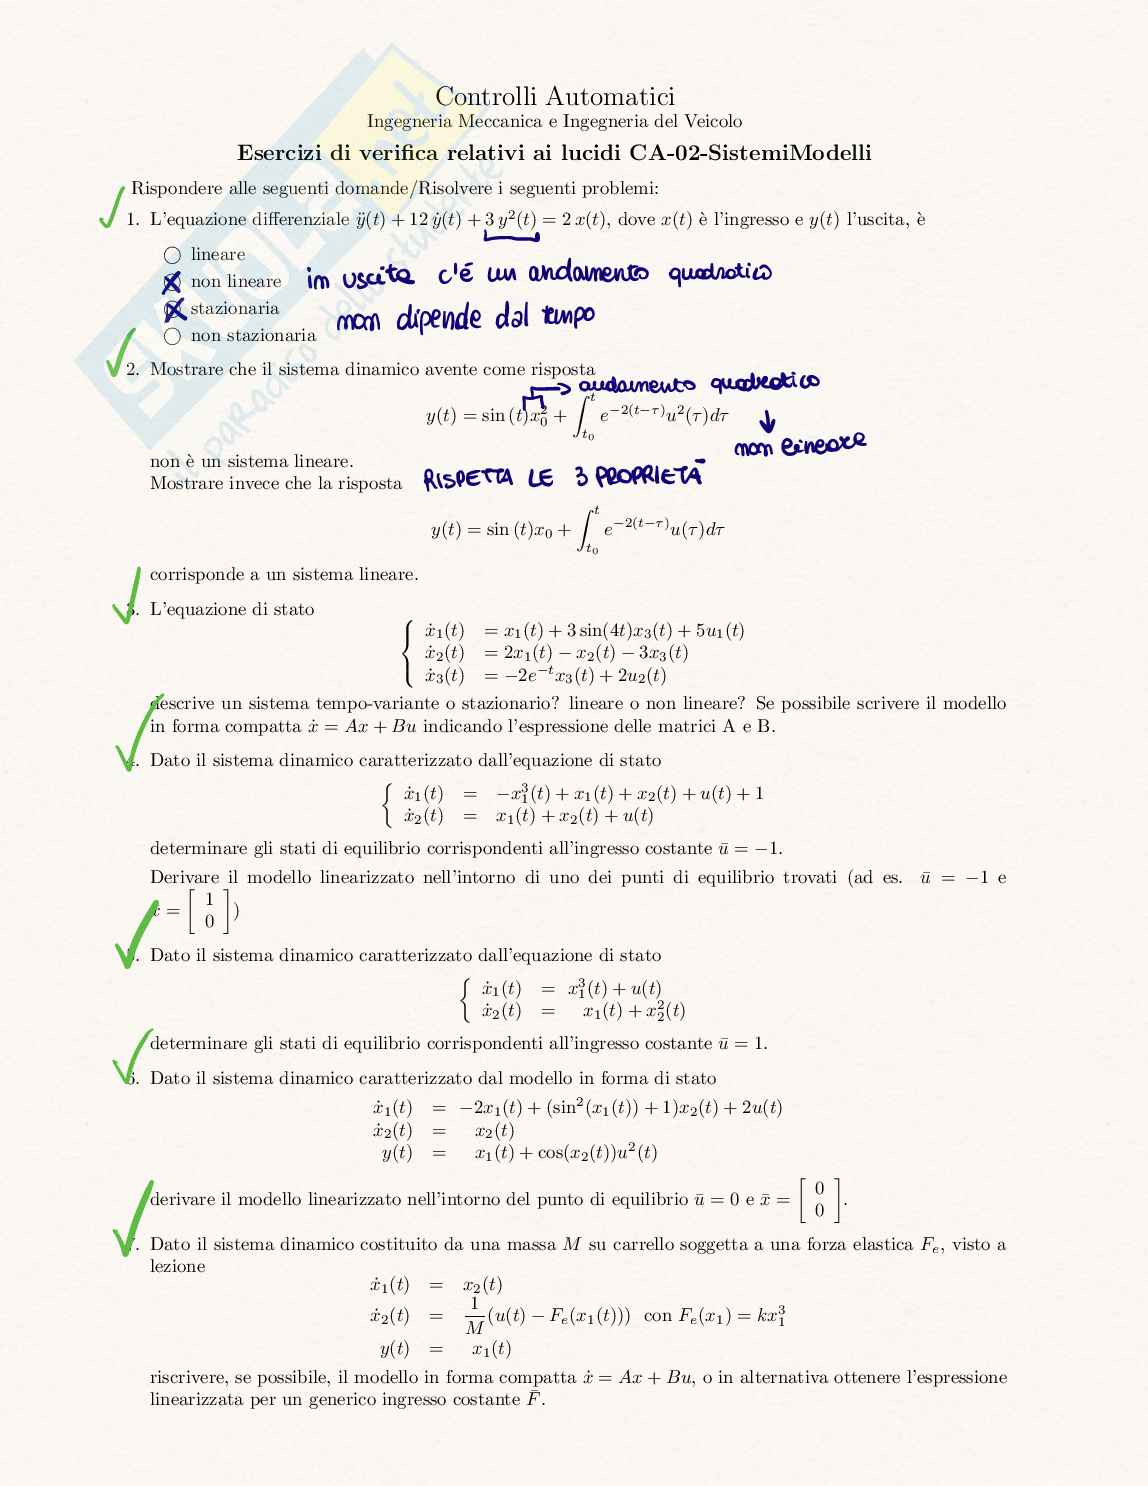 Controlli Automatici
Ingegneria Meccanica e Ingegneria del Veicolo
Esercizi di verifica relativi ai lucidi CA-02-SistemiModelli
Rispondere alle seguenti domande/Risolvere i seguenti problemi:
1. L'equazione differenziale ÿ(t) + 12 ẏ(t) + 3 y²(t) = 2 x(t), dove x(t) è l'ingresso e y(t) l'uscita, è
lineare
non lineare in uscita c'é un andamento quadratico
stazionaria non dipende dal tempo
non stazionaria
2. Mostrare che il sistema dinamico avente come risposta
→ andamento quadratico
y(t) = sin (t)x₀² + ∫_{t₀}^{t} e^{−2(t−τ)}u²(τ)dτ
↓
non lineare
non è un sistema lineare.
Mostrare invece che la risposta RISPETTA LE 3 PROPRIETÀ
y(t) = sin (t)x₀ + ∫_{t₀}^{t} e^{−2(t−τ)}u(τ)dτ
corrisponde a un sistema lineare.
3. L'equazione di stato
ẋ₁(t) = x₁(t) + 3 sin(4t)x₃(t) + 5u₁(t)
ẋ₂(t) = 2x₁(t) − x₂(t) − 3x₃(t)
ẋ₃(t) = −2e^{−t}x₃(t) + 2u₂(t)
descrive un sistema tempo-variante o stazionario? lineare o non lineare? Se possibile scrivere il modello
in forma compatta ẋ = Ax + Bu indicando l'espressione delle matrici A e B.
4. Dato il sistema dinamico caratterizzato dall'equazione di stato
ẋ₁(t) = −x₁³(t) + x₁(t) + x₂(t) + u(t) + 1
ẋ₂(t) = x₁(t) + x₂(t) + u(t)
determinare gli stati di equilibrio corrispondenti all'ingresso costante ū = −1.
Derivare il modello linearizzato nell'intorno di uno dei punti di equilibrio trovati (ad es. ū = −1 e
x̄ = [ 1 0 ])
5. Dato il sistema dinamico caratterizzato dall'equazione di stato
ẋ₁(t) = x₁³(t) + u(t)
ẋ₂(t) = x₁(t) + x₂²(t)
determinare gli stati di equilibrio corrispondenti all'ingresso costante ū = 1.
6. Dato il sistema dinamico caratterizzato dal modello in forma di stato
ẋ₁(t) = −2x₁(t) + (sin²(x₁(t)) + 1)x₂(t) + 2u(t)
ẋ₂(t) = x₂(t)
y(t) = x₁(t) + cos(x₂(t))u²(t)
derivare il modello linearizzato nell'intorno del punto di equilibrio ū = 0 e x̄ = [ 0 0 ].
7. Dato il sistema dinamico costituito da una massa M su carrello soggetta a una forza elastica Fₑ, visto a
lezione
ẋ₁(t) = x₂(t)
ẋ₂(t) = 1/M (u(t) − Fₑ(x₁(t))) con Fₑ(x₁) = kx₁³
y(t) = x₁(t)
riscrivere, se possibile, il modello in forma compatta ẋ = Ax + Bu, o in alternativa ottenere l'espressione
linearizzata per un generico ingresso costante F̄.